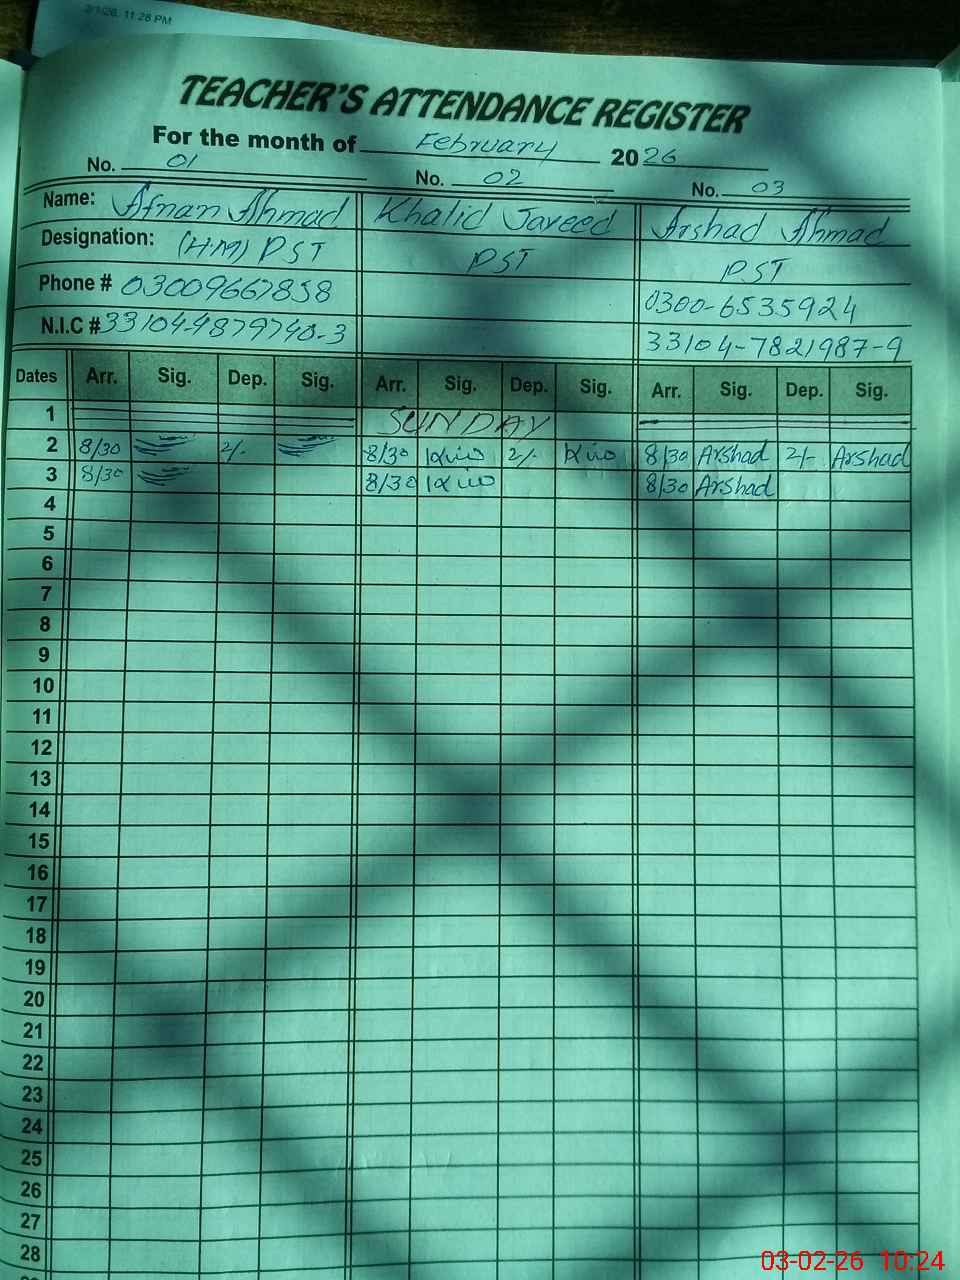 2/1/26, 11:28 PM
TEACHER'S ATTENDANCE REGISTER
For the month of February 2026
No. 01 No. 02 No. 03
Name: Afnan Ahmad Khalid Javeed Arshad Ahmad
Designation: (H.M) PST PST PST
Phone # 03009667858 0300-6535924
N.I.C # 33104-4879740-3 33104-7821987-9
Dates Arr. Sig. Dep. Sig. Arr. Sig. Dep. Sig. Arr. Sig. Dep. Sig.
1 SUNDAY
2 8/30 2/- 8/30 2/- 8/30 Arshad 2/- Arshad
3 8/30 8/30 8/30 Arshad
4
5
6
7
8
9
10
11
12
13
14
15
16
17
18
19
20
21
22
23
24
25
26
27
28
03-02-26 10:24